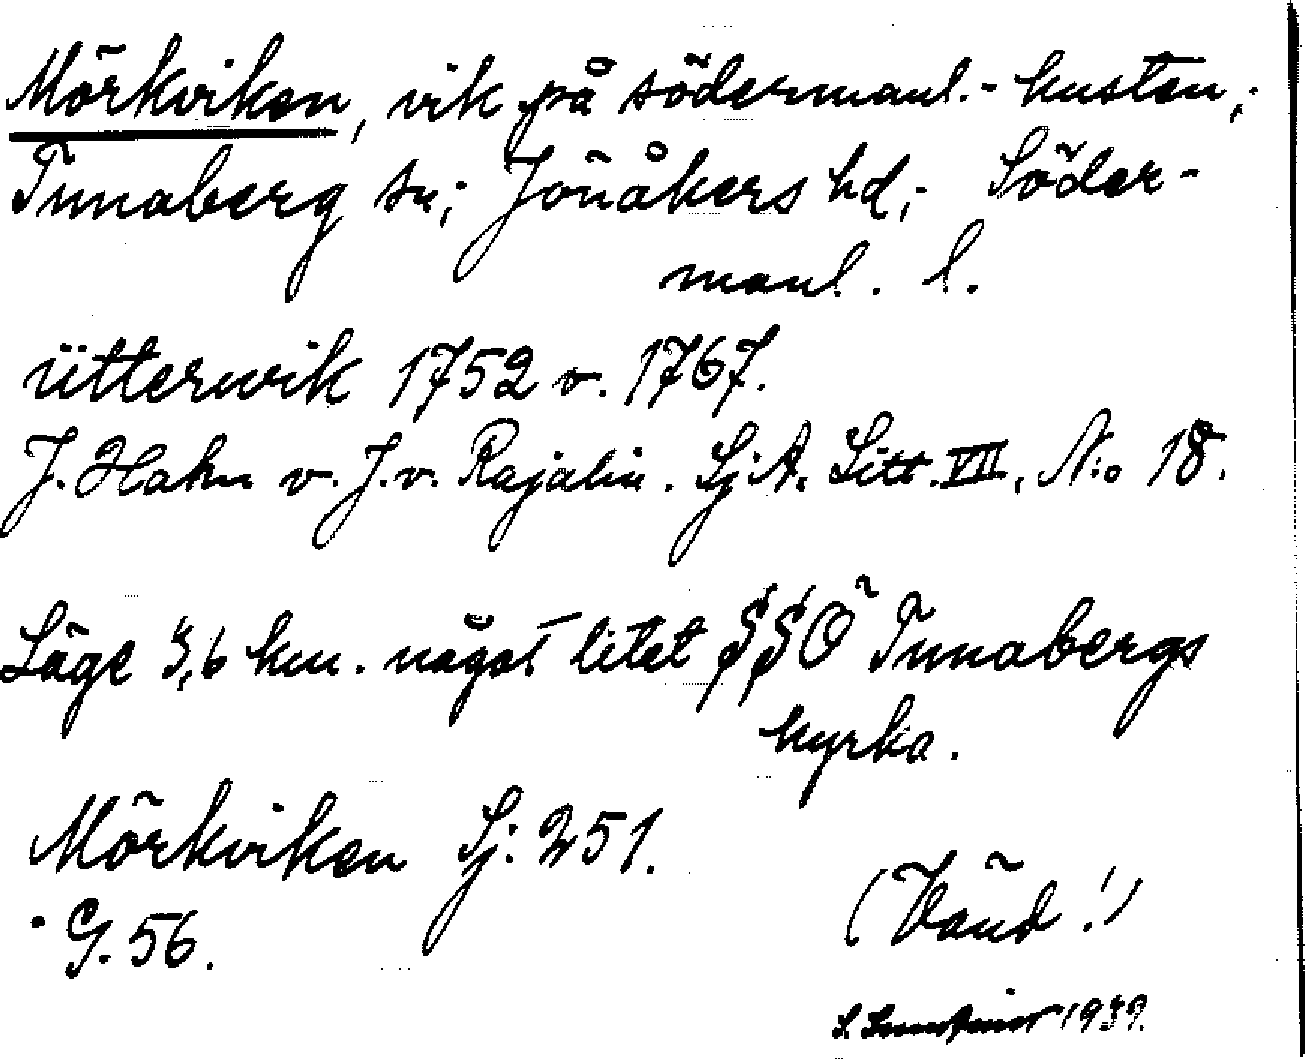 Mörkviken, vik på södermanl.-kusten,;
Tunaberg sn; Jönåkers hd,; Söder-
manl. l.
ütterwik 1752 o. 1767.
J. Hahn o. J. v. Rajalin. Sj. A. Litt. VII, N:o 18.
Läge 3,6 km. något litet SSO Tunabergs
kyrka.
Mörkviken Sj. 251.
G. 56.
(Vänd!)
S. 1939.